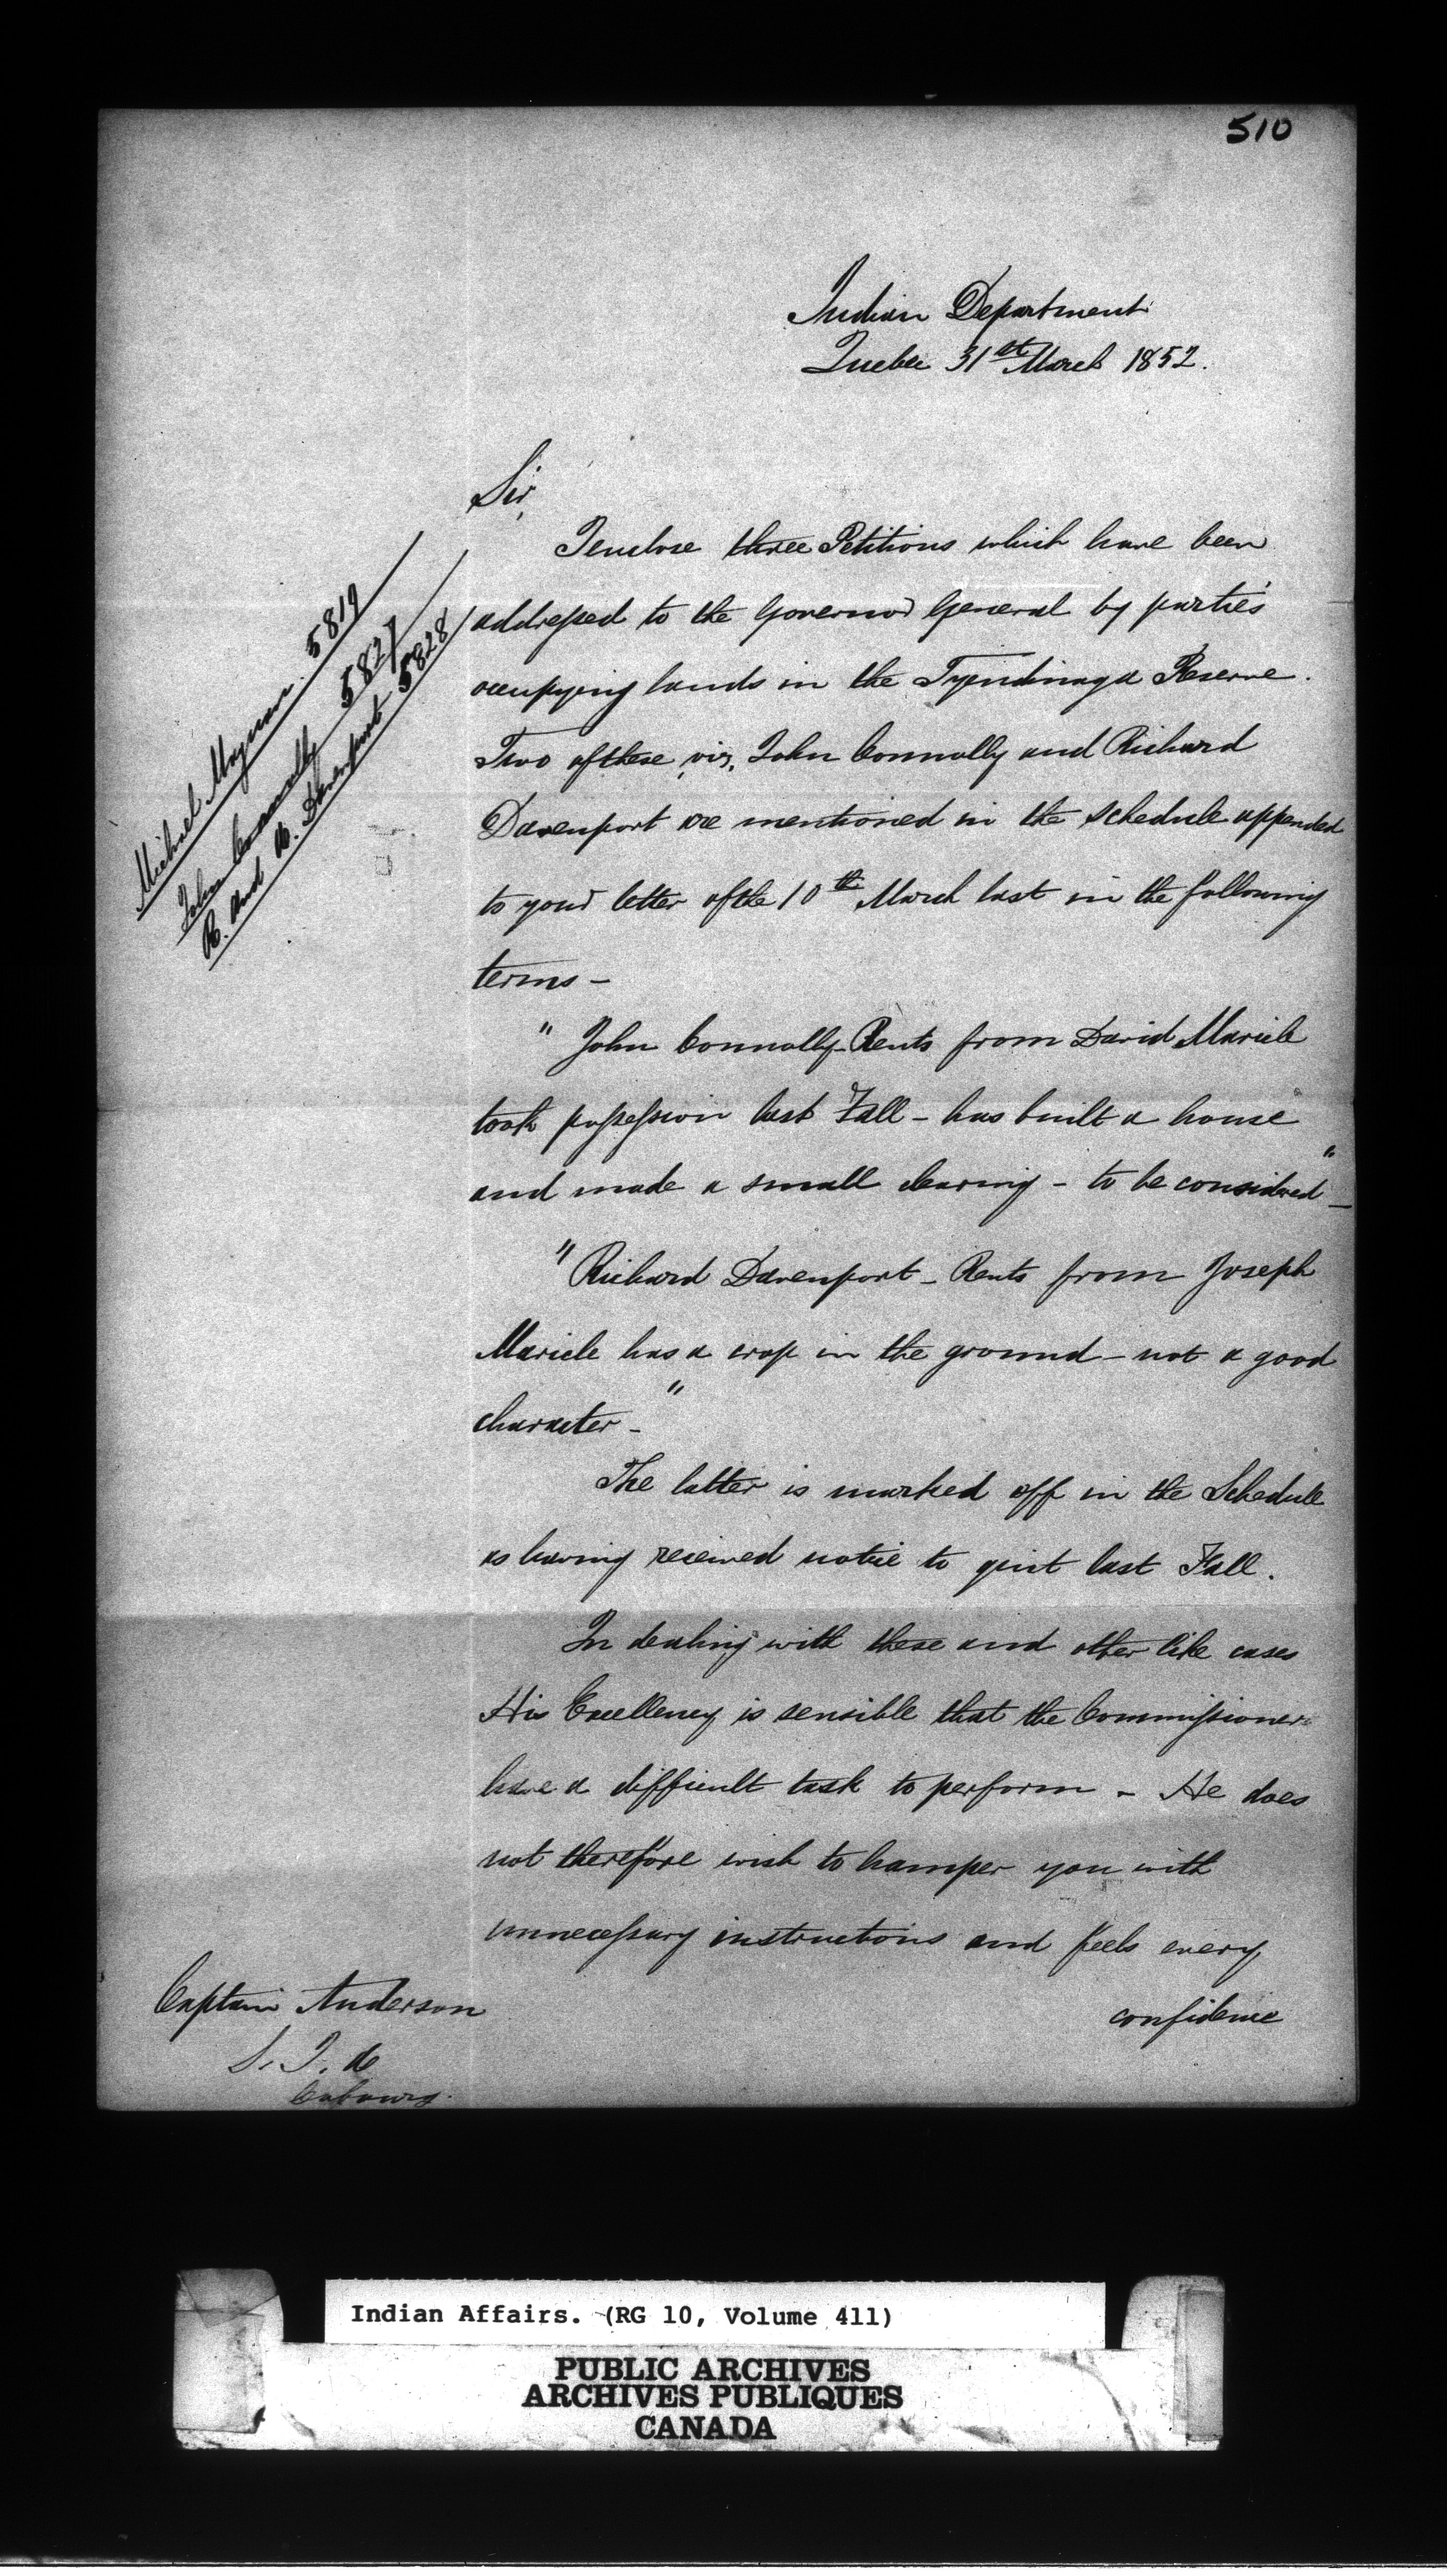 510
Indian Department
Quebec 31st March 1852.
Sir,
I enclose three Petitions which have been
addressed to the Governor General by parties
occupying lands in the Tyendinaga Reserve.
Two of these, viz, John Connolly and Richard
Davenport are mentioned in the schedule appended
to your letter of the 10th March last in the following
terms –
" John Connolly – Rents from David Maricle
took possession last Fall – has built a house
and made a small clearing – to be considered" –
" Richard Davenport – Rents from Joseph
Maricle has a crop in the ground – not a good
character – "
The latter is marked off in the Schedule
as having received notice to quit last Fall.
In dealing with these and other like cases
His Excellency is sensible that the Commissioners
have a difficult task to perform – He does
not therefore wish to hamper you with
unnecessary instructions and feels every
confidence
Michael 5819
John Connolly 5827
R. and Davenport 5828
Captain Anderson
S. I. &c
Cobourg.
Indian Affairs. (RG 10, Volume 411)
PUBLIC ARCHIVES
ARCHIVES PUBLIQUES
CANADA